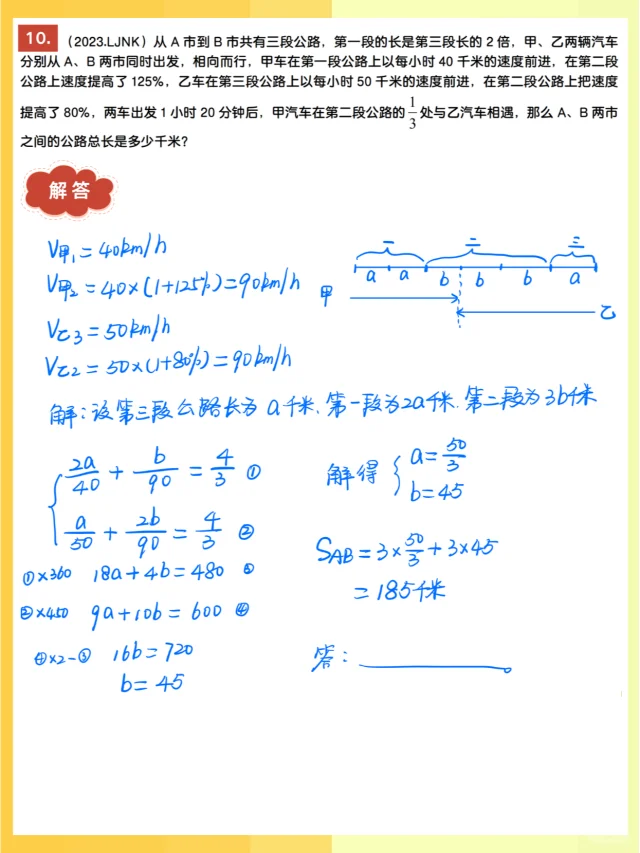 10. （2023.LJNK）从 A 市到 B 市共有三段公路，第一段的长是第三段长的 2 倍，甲、乙两辆汽车
分别从 A、B 两市同时出发，相向而行，甲车在第一段公路上以每小时 40 千米的速度前进，在第二段
公路上速度提高了 125%，乙车在第三段公路上以每小时 50 千米的速度前进，在第二段公路上把速度
提高了 80%，两车出发 1 小时 20 分钟后，甲汽车在第二段公路的 1/3 处与乙汽车相遇，那么 A、B 两市
之间的公路总长是多少千米？
解答
V甲₁ = 40km/h
V甲₂ = 40×(1+125%)=90km/h
V乙3 = 50km/h
V乙2 = 50×(1+80%)=90km/h
一 二 三
a a b b b a
甲
乙
解：设第三段公路长为 a千米、第一段为2a千米. 第二段为3b千米
2a/40 + b/90 = 4/3 ①
a/50 + 2b/90 = 4/3 ②
①×360 18a+4b=480 ③
②×450 9a+10b=600 ④
④×2-③ 16b=720
b=45
解得 { a=50/3
b=45
SAB = 3×50/3+3×45
= 185千米
答：